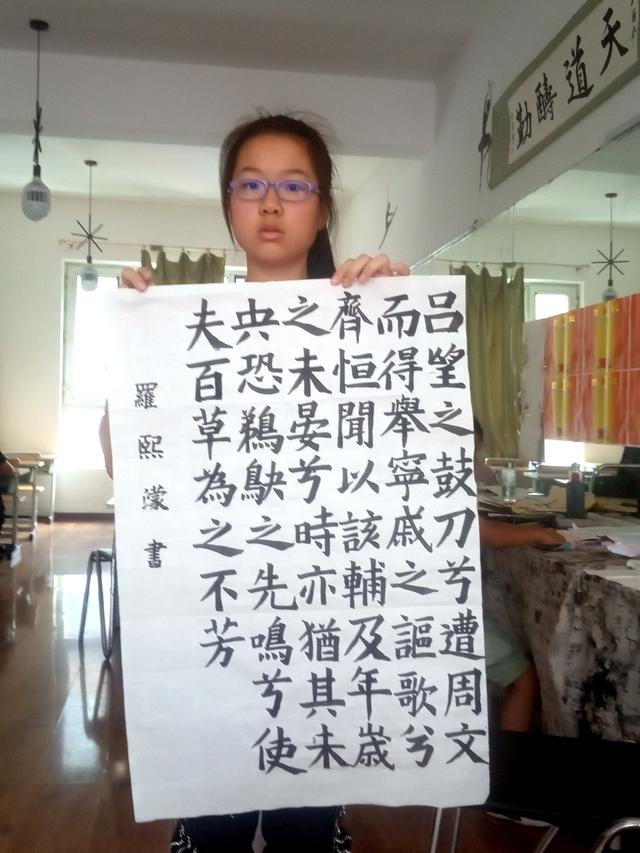 天道醻勤
呂朢之鼓刀兮遭周文
而得舉寧戚之謳歌兮
齊恒聞以該輔及年歲
之未晏兮時亦猶其未
央恐鵜鴃之先鳴兮使
夫百草為之不芳
羅熙濛書